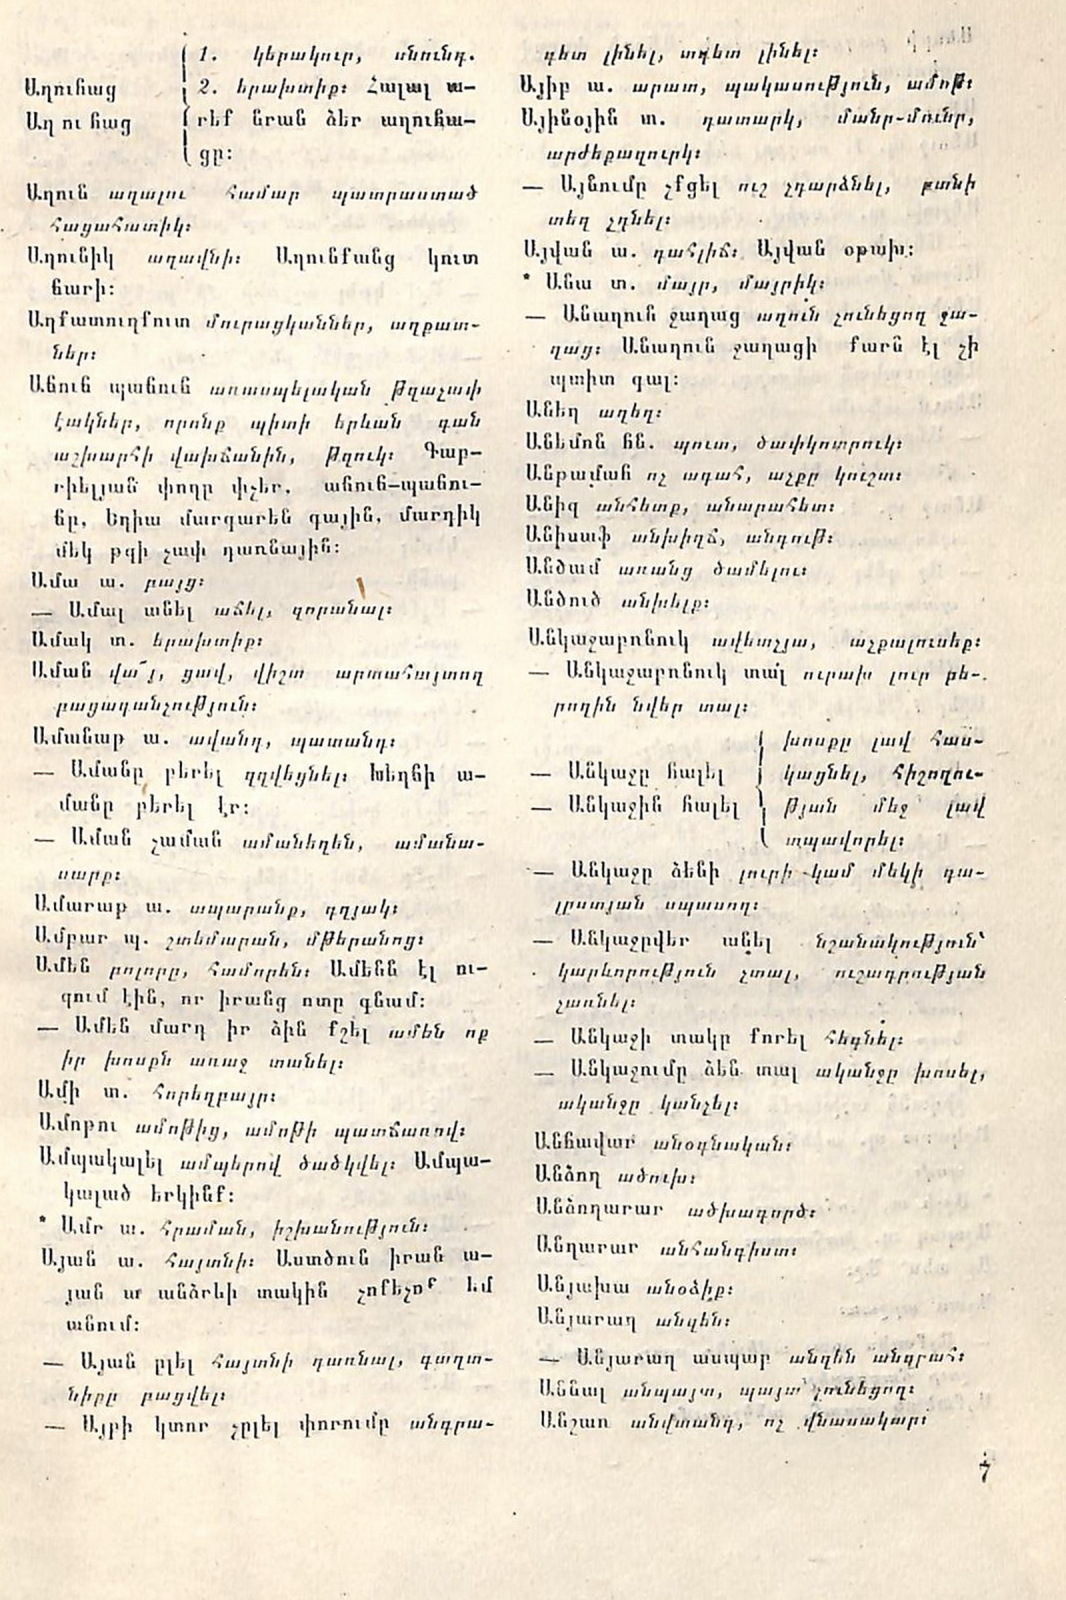 1. կերակուր, սնունդ.
Աղուհաց
2. երախտիք։ Հալալ ա—
Աղ ու հաց
րեք նրան ձեր աղուհա—
ցը։
Աղուն աղալու համար պատրաստած
հացահատիկ։
Աղունիկ աղավնի։ Աղունքանց կուտ
ճարի։
Աղքատուղքուտ մուրացկաններ, աղքատ—
ներ։
Աճուճ պաճուճ առասպելական թզաչափ
էակներ, որոնք պիտի երևան գան
աշխարհի վախճանին, թզուկ։ Գաբ—
րիելյան փողը փչեր, աճուճ—պաճու—
ճը, Եղիա մարգարեն գային, մարդիկ
մեկ թզի չափ դառնային։
Ամա ա. բայց։
— Ամալ անել աճել, զորանալ։
Ամակ տ. երախտիք։
Աման վա՜յ, ցավ, վիշտ արտահայտող
բացականչություն։
Ամանաթ ա. ավանդ, պատանդ։
— Ամանը բերել զզվեցնել։ Խեղճի ա—
մանը բերել էր։
— Աման չաման ամանեղեն, ամանա—
սարք։
Ամարաթ ա. ապարանք, դղյակ։
Ամբար պ. շտեմարան, մթերանոց։
Ամեն բոլորը, համորեն։ Ամենն էլ ու—
զում էին, որ իրանց ոտը գնամ։
— Ամեն մարդ իր ձին քշել ամեն ոք
իր խոսքն առաջ տանել։
Ամի տ. հորեղբայր։
Ամոթու ամոթից, ամոթի պատճառով։
Ամպակալել ամպերով ծածկվել։ Ամպա—
կալած երկինք։
* Ամր ա. հրաման, իշխանություն։
Այան ա. հայտնի։ Աստծուն իրան ա—
յան ա անձրևի տակին չոքեչոք եմ
անում։
— Այան ըլել հայտնի դառնալ, գաղտ—
նիքը բացվել։
— Այբի կտոր չըլել փորումը անգրա—
գետ լինել, տգետ լինել։
Այիբ ա. արատ, պակասություն, ամոթ։
Այինօյին տ. դատարկ, մանր-մունր,
արժեքազուրկ։
— Այնումը չքցել ուշ չդարձնել, բանի
տեղ չդնել։
Այվան ա. դահլիճ։ Այվան օթախ։
* Անա տ. մայր, մայրիկ։
— Անաղուն ջաղաց աղուն չունեցող ջա—
ղաց։ Անաղուն ջաղացի քարն էլ չի
պտիտ գալ։
Անեղ աղեղ։
Անեմոն հն. պուտ, ծափկոտրուկ։
Անթամահ ոչ ագահ, աչքը կուշտ։
Անիզ անհետք, անարահետ։
Անիսաֆ անխիղճ, անգութ։
Անծամ առանց ծամելու։
Անծուծ անխելք։
Անկաջարոնուկ ավետչյա, աչքալուսեք։
— Անկաջարոնուկ տալ ուրախ լուր բե—
րողին նվեր տալ։
խոսքը լավ հաս—
— Անկաջը հալել
կացնել, հիշողու—
— Անկաջին հալել
թյան մեջ լավ
տպավորել։
— Անկաջը ձենի լուրի կամ մեկի գա—
լըստյան սպասող։
— Անկաջրվեր անել նշանակություն՝
կարևորություն չտալ, ուշադրության
չառնել։
— Անկաջի տակը քորել հեգնել։
— Անկաջումը ձեն տալ ականջը խոսել,
ականջը կանչել։
Անճավար անօգնական։
Անձող ածուխ։
Անձողարար ածխագործ։
Անղարար անհանգիստ։
Անյախա անօձիք։
Անյարաղ անզեն։
— Անյարաղ ասպաբ անզեն անզրահ։
Աննալ անպայտ, պայտ չունեցող։
Անշառ անվտանգ, ոչ վնասակար։
7